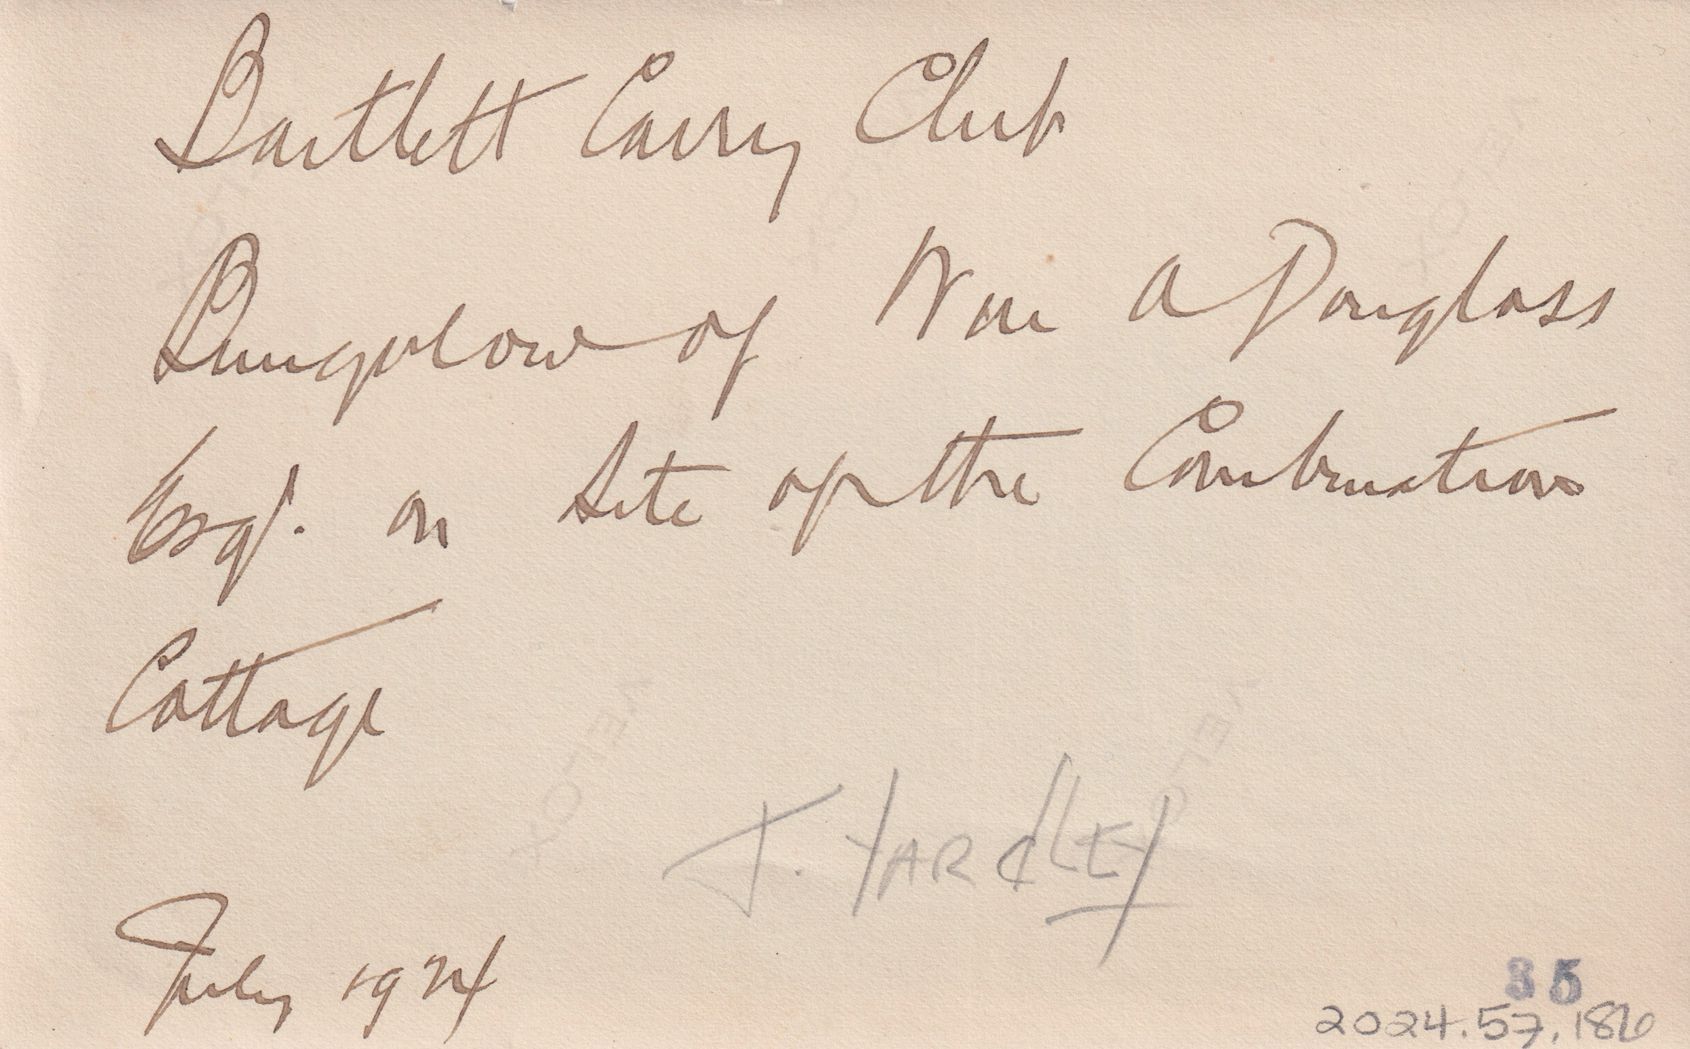 Bartlett Carry Club
Bungalow of Wm A Douglass
Esq. on Site of the Combination
Cottage
J. YARdLEY
July 1924
35
2024.57.18